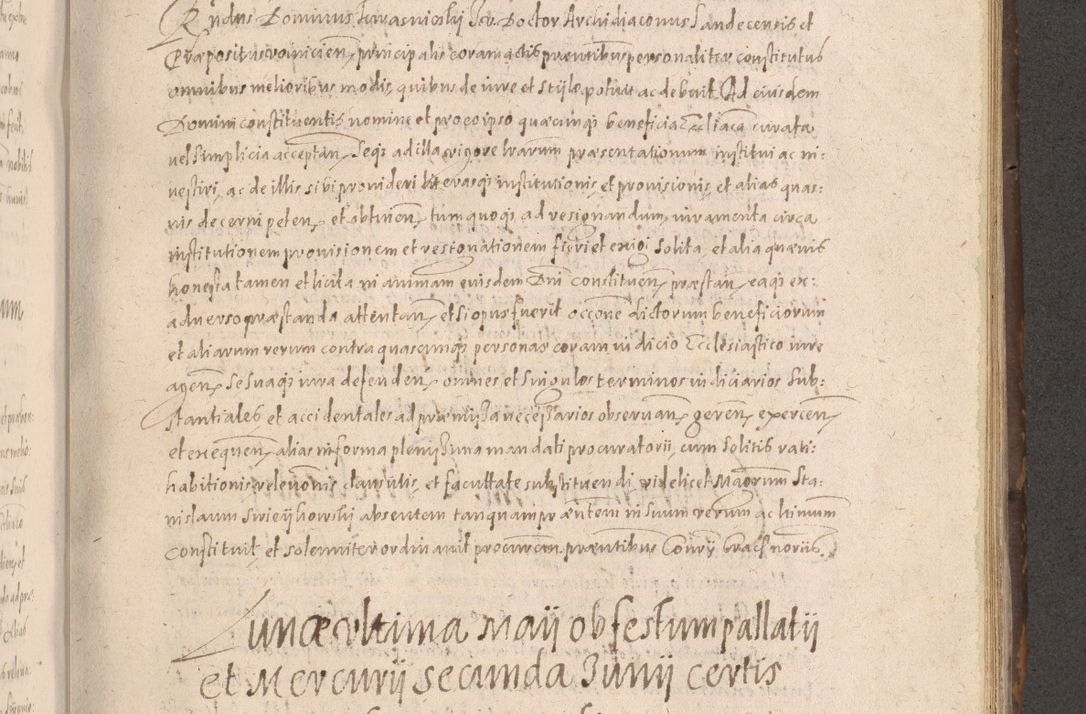 Rndus Dominus Jarasnioskj Iur. Doctor Archidiaconus Sandecensis et
Præpositus voiniciens principalis coram actis præntibus personaliter constitutus
omnibus melioribus modis, quibus de iure et stylo potuit ac debuit. Ad eiusdem
Domini constituentis nomine et pro eo ipso quæcunqs beneficia Eccliaca curata
vel simplicia acceptan, seqs ad illa vigore lrarum præsentationum institui ac in-
vestiri, ac de illis sibi provideri literasqs institutionis, et provisionis, et alias quas-
vis decerni peten, et obtinen, tum quoqs ad resignandum, iuramenta circa
institutionem provisionem et resignationem fieri et exigi solita, et alia quævis
honesta tamen et licita in animam eiusdem Dni constituen præstan, eaqs ex-
adverso præstanda attentan, et si opus fuerit occone dictorum beneficiorum
et aliarum rerum contra quascunqs personas coram iudicio Ecclesiastico iure
agen, se suaqs iura defenden, omnes et singulos terminos iudiciarios sub-
stantiales et accidentales ad præmissa necessarios observan, geren, exercen
et exequen, alias in forma plenissima mandati procuratorii, cum solitis rati-
habitionis, relevonis clausulis, et facultate substituendi videlicet Magrum Sta-
nislaum Swieijkowskj absentem tanquam præntem in suum verum ac ltimum
constituit et solenniter ordinavit procurem. præntibus
Lunæ vltima Maij ob festum pallatij
et Mercurij secunda Junij certis